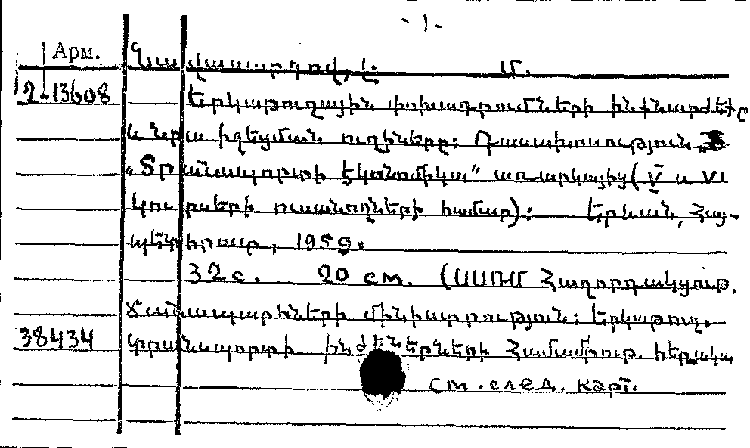 - 1 -
Арм.
Գավասարդով, Լ. Մ.
2-13608
Երկաթուղային փոխադրումների ինքնարժեքը
և նրա իջեցման ուղիները: Դասախոսություն
„Տրանսպորտի էկոնոմիկա" առարկայից (V և VI
կուրսերի ուսանողների համար): Երևան, Հայ-
պետհրատ, 1959.
32 с. 20 см. (ՍՍՌՄ Հաղորդակցութ.
ճանապարհների մինիստրություն: Երկաթուղ.
38434
տրանսպորտի ինժեներների Համամիութ. հեռակա
см. след. карт.